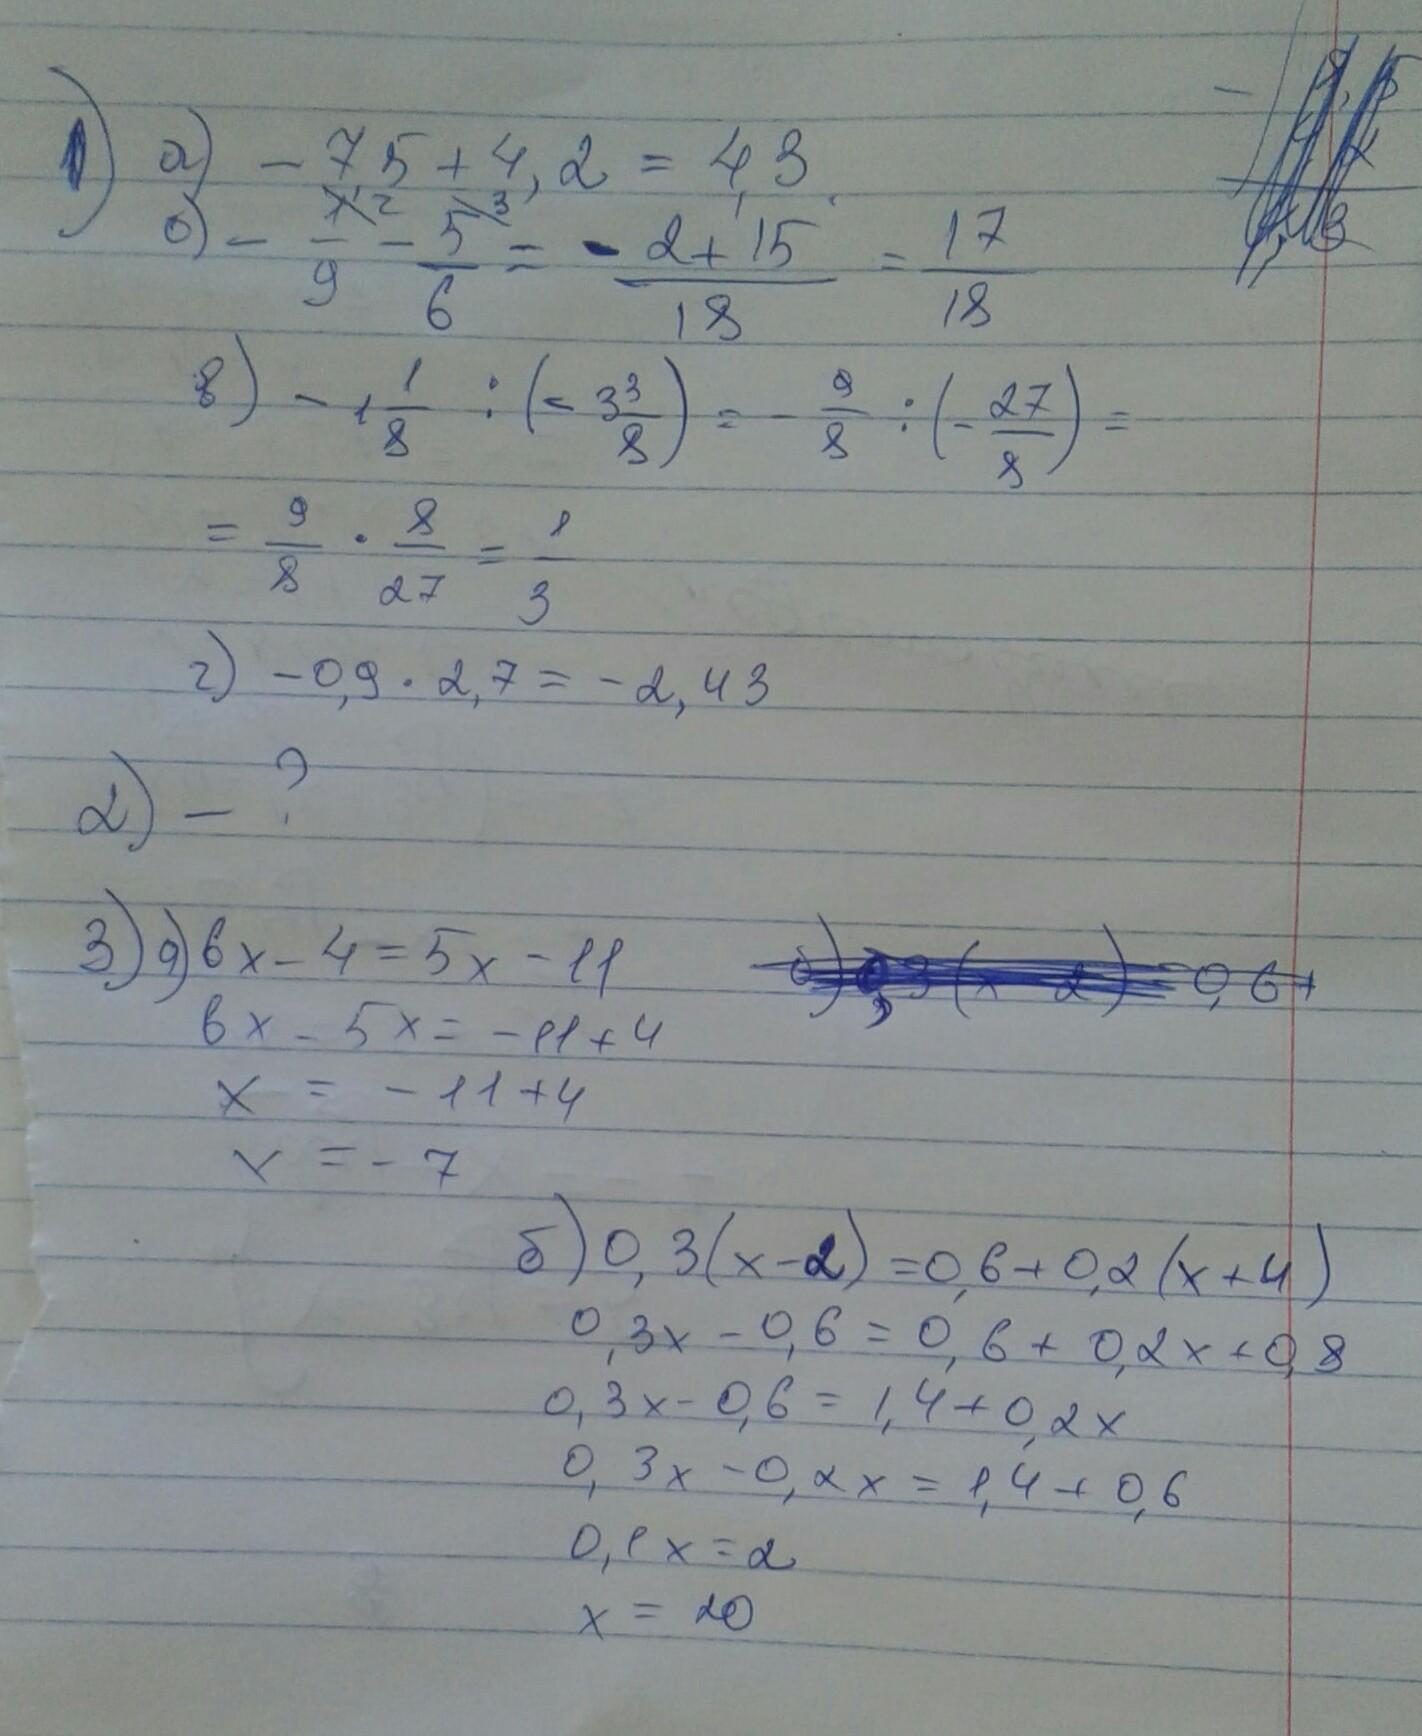 1) а) - 75 + 4,2 = 4,3
б) - 1/9 - 5/6 = - 2 + 15/18 = 17/18
в) - 1 1/8 : (- 3 3/8) = - 9/8 : (- 27/8) =
= 9/8 · 8/27 = 1/3
г) -0,9 · 2,7 = -2,43
2) - ?
3) а) 6x - 4 = 5x - 11
6x - 5x = -11 + 4
x = -11 + 4
x = -7
б) 0,3(x-2) = 0,6 + 0,2(x+4)
0,3x - 0,6 = 0,6 + 0,2x + 0,8
0,3x - 0,6 = 1,4 + 0,2x
0,3x - 0,2x = 1,4 + 0,6
0,1x = 2
x = 20